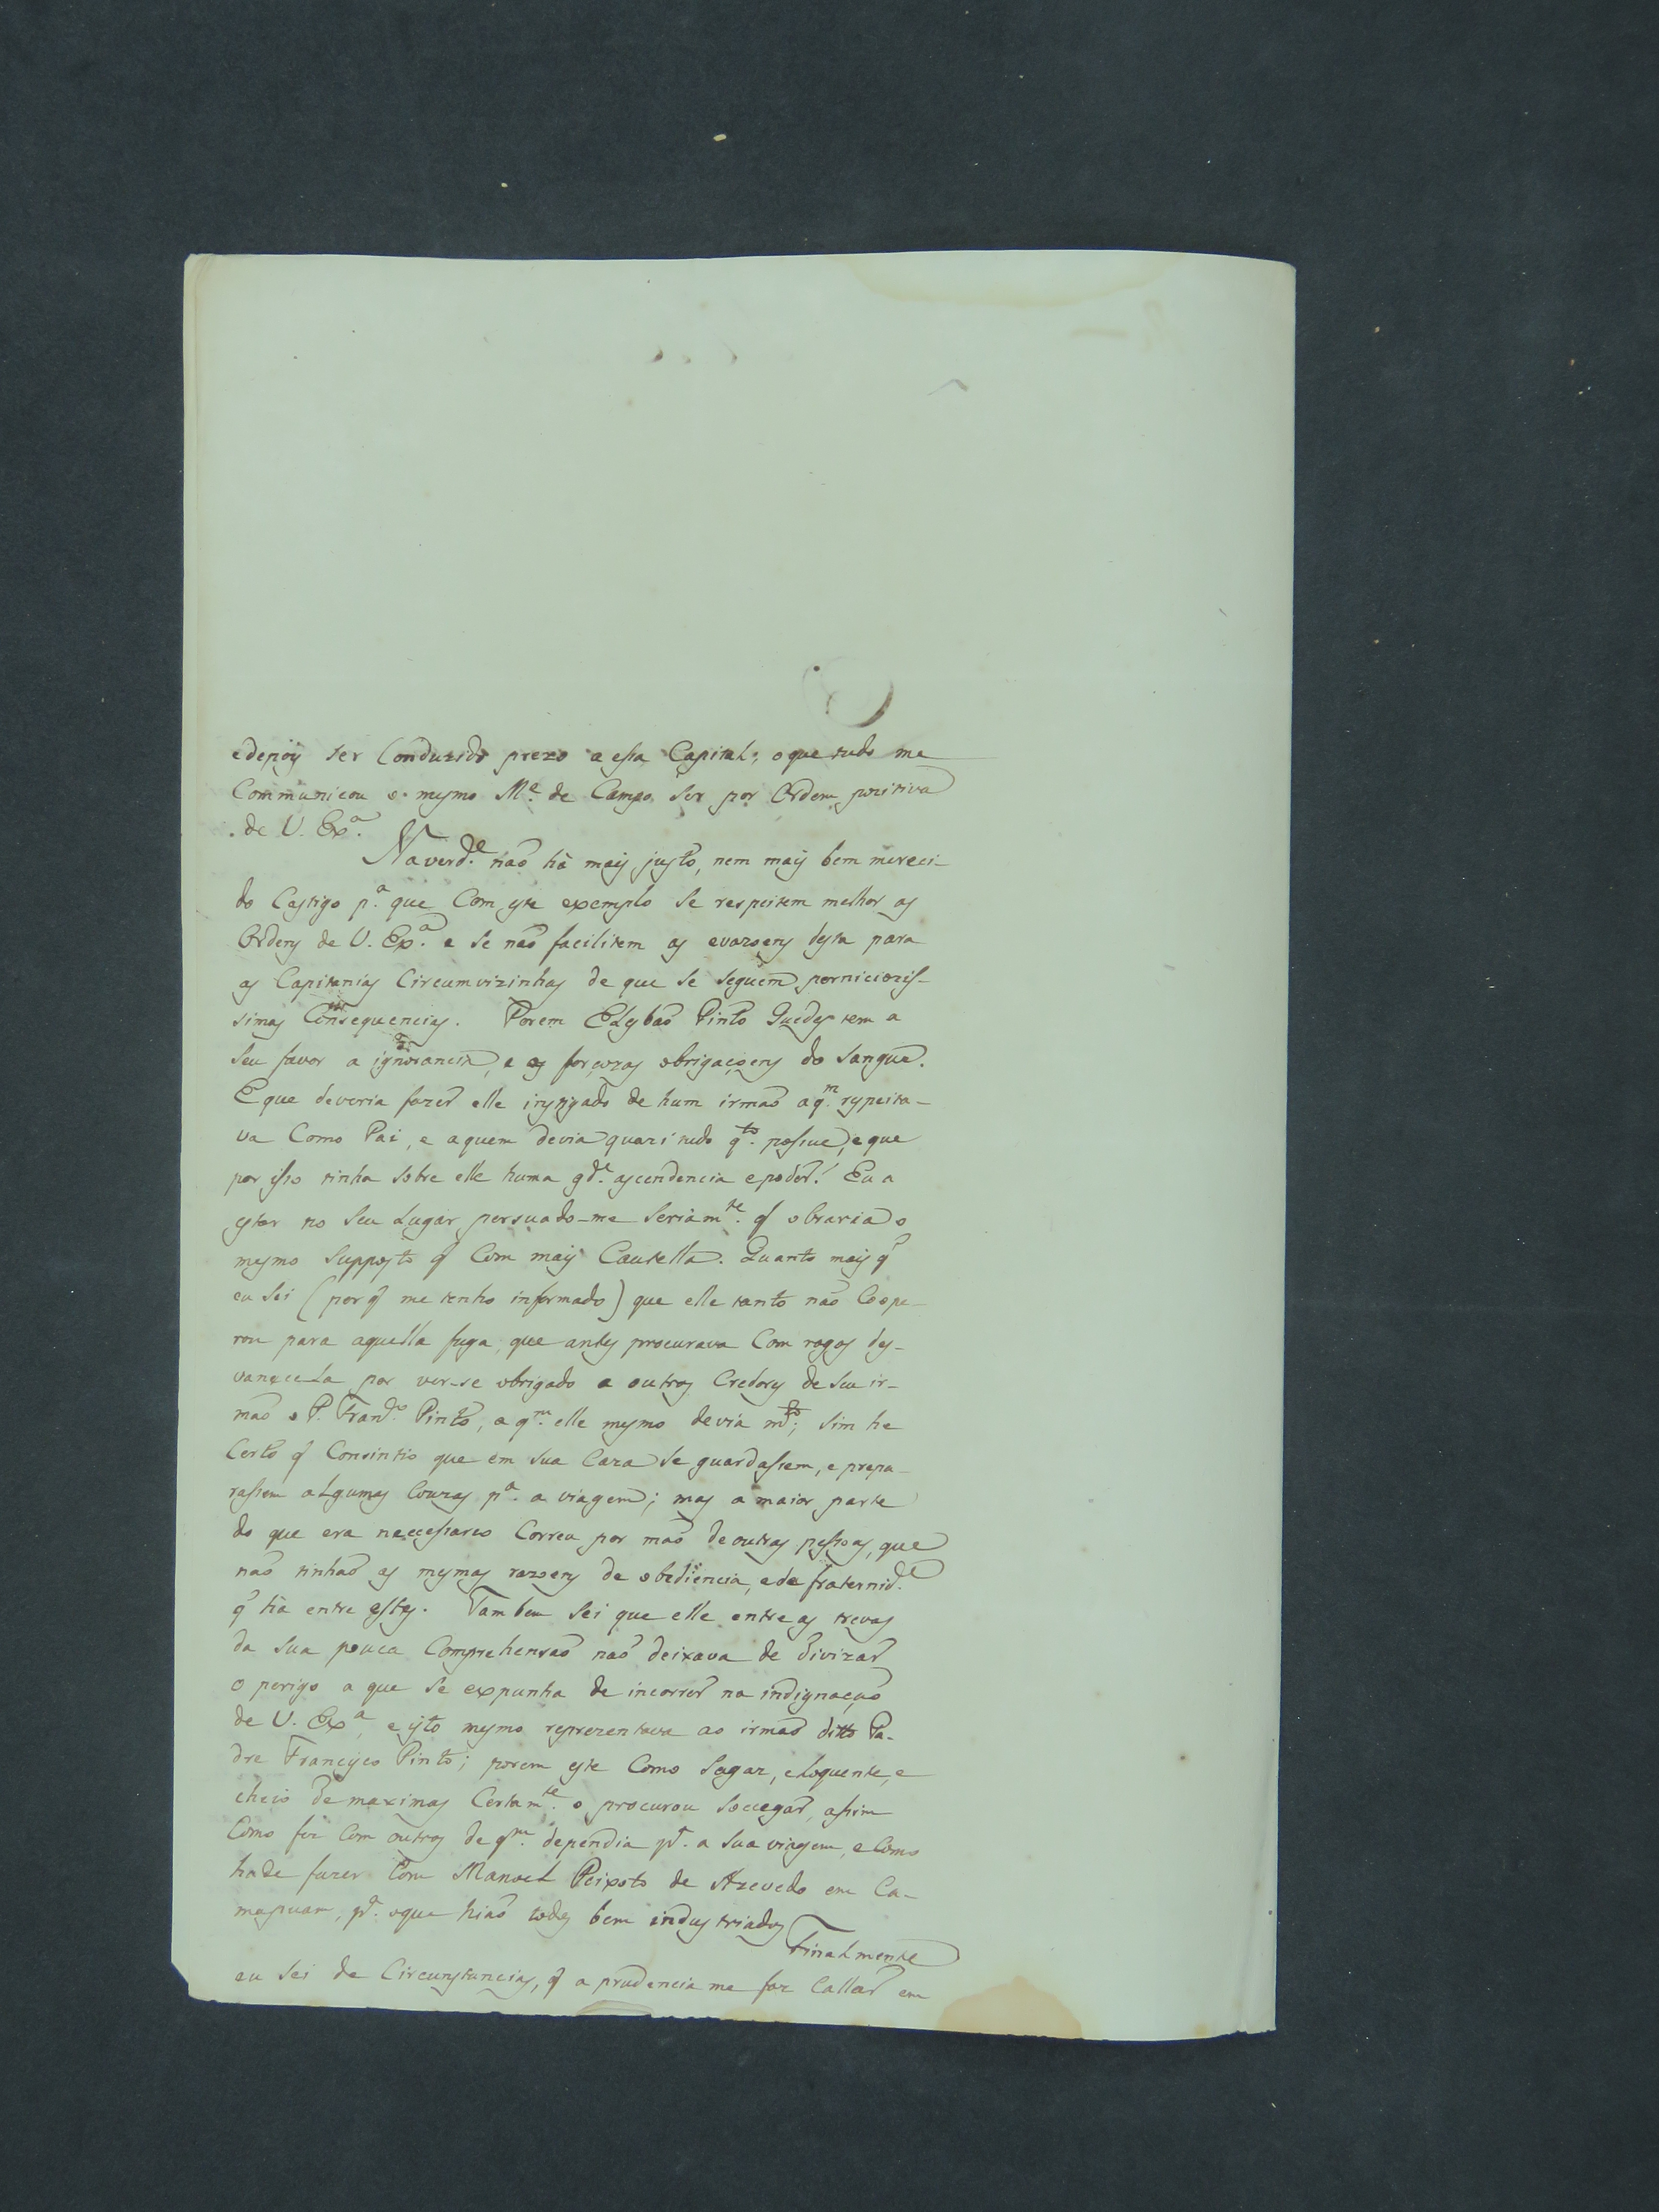 edepois ser Conduzido prezo a esta Capital; oque tudo me
Communicou o mesmo M.e de Campo ser por Ordem pozitiva
de V. Ex.a
Naverd.e não hà mais justo, nem mais bem mereci-
do Castigo p.a que Com este exemplo se respeitem melhor as
Ordens de V. Ex.a e se não facilitem as evazoens desta para
as Capitanias Circumvizinhas de que se seguem pernicioziss-
simas Consequencias. Porem Estevão Pinto Guedes tem a
seu favor a ignorancia, e as forçozas obrigaçoens do sangue.
E que deveria fazer elle instigado de hum irmão a q.m respeita-
va Como Pai, e aquem devia quazi tudo q.to possue, e que
por isso tinha sobre elle huma gd.e ascendencia e poder! Eu a
estar no seu Lugar, persuado-me seriam.te q obraria o
mesmo supposto q Com mais Cautella. Quanto mais q
eu sei (por q me tenho informado) que elle tanto não Coope-
rou para aquella fuga, que antes procurava Com rogos des-
vanecela por ver-se obrigado a outros Credores de seu ir-
mão o P. Fran.co Pinto, a q.m elle mesmo devia m.to; sim he
Certo q Consintio que em sua Caza se guardassem, e prepa-
rassem algumas Couzas p.a a viagem; mas a maior parte
do que era necessario Correu por mão de outras pessoas, que
não tinhão as mesmas razoens de obediencia, e de fraternid.e
q hà entre estes. Tambem sei que elle entre as trevas
da sua pouca Comprehensão não deixava de divizar
o perigo a que se expunha de incorrer na indignação
de V. Ex.a, e isto mesmo reprezentava ao irmão ditto Pa-
dre Francisco Pinto; porem este Como sagaz, eloquente, e
cheio de maximas Certam.te o procurou socegar, assim
Como fez Com outros de q.m dependia p.a a sua viagem, e Como
hade fazer Com Manoel Peixoto de Azevedo em Ca-
mapuam, p.a oque hião todos bem industriados
Finalmente
eu sei de Circunstancias, q a prudencia me faz Callar em